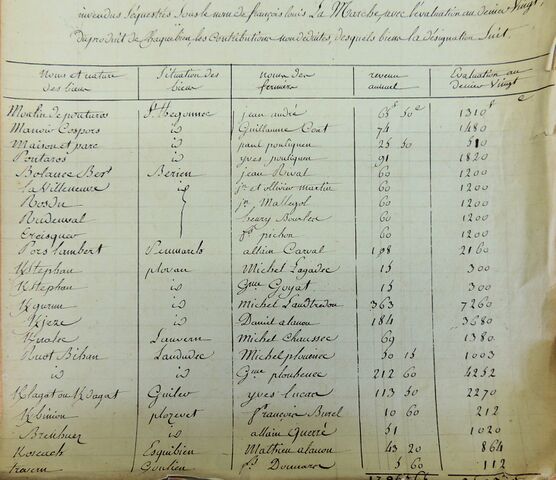 invendus séquestrés sous le nom de françois louis La Marche, avec l'évaluation au denier Vingt,
Du produit de Chaque bien, les Contributions non déduites, desquels biens la désignation suit
Noms et nature des biens Situation des biens noms des fermiers revenu annuel Évaluation au denier Vingt
Moulin de penturos St hegonnec jean andré 65 f 50 c 1310 f c
Manoir Cospors id Guillaume Coat 74 1480
Maison et parc id paul pouliquen 25 50 510
Pontaros id yves pouliquen 91 1820
Botauce Ber Berien jean Rival 60 1200
La Villeneuve id jn et ollivier martin 60 1200
Rosdu jn Mallegol 60 1200
Rudenval henry Bourles 60 1200
Creisquer fs pichon 60 1200
Pors lambert Penmarch allain Carval 108 2160
Kstephan plovan Michel Lagadec 15 300
Kstephan id Gme Goyat 15 300
Kgurun id Michel Landredon 363 7260
Kjeze id Daniel alanou 184 3680
Lanvern Michel Chaussec 69 1380
Ruot Bihan Landudec Michel plouinec 50 15 1003
id id Gme plouhenec 212 60 4252
Klagat ou Kdagat Guiler yves Lucas 113 50 2270
Kbinion plozevet françois Burel 10 60 212
Brenhuel id allain Querré 51 1020
Koscach Esquibien Mathieu alanou 43 20 864
travern Goulien 5 60 112